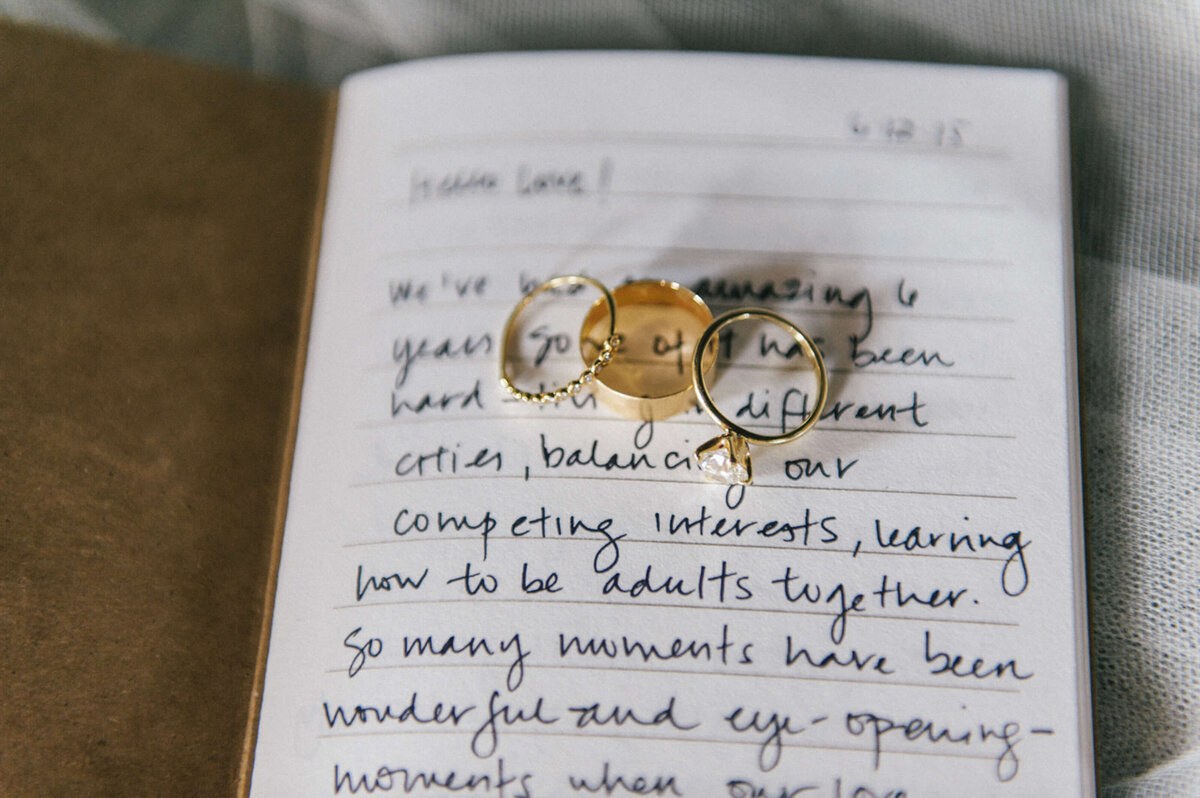 6·12·15
Hello Love!
We've had an amazing 6
years. Some of it has been
hard - living in different
cities, balancing our
competing interests, learning
how to be adults together.
So many moments have been
wonderful and eye-opening-
moments when our love